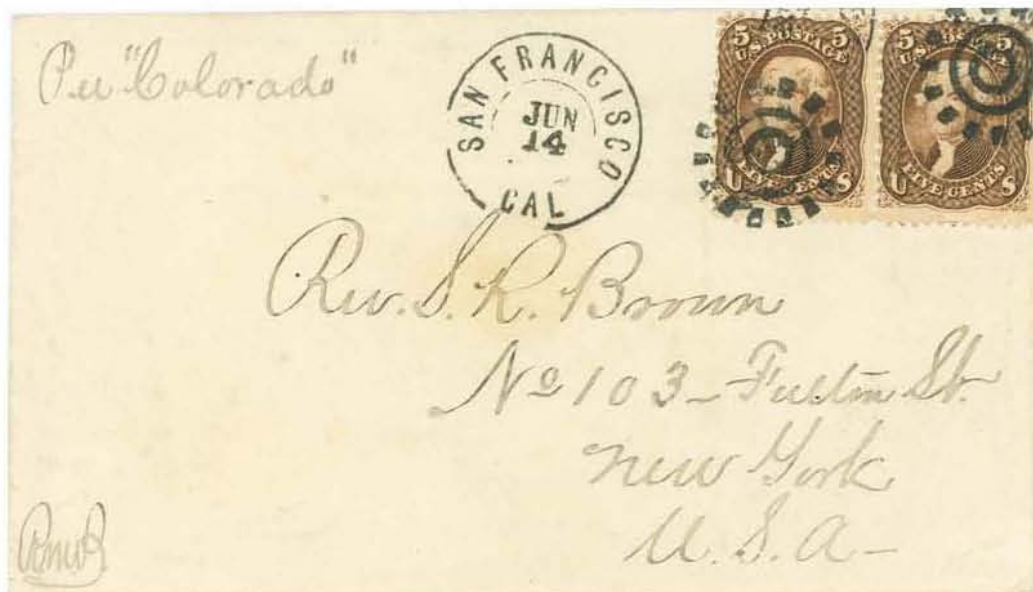 Per "Colorado"
SAN FRANCISCO
JUN
14
CAL
5 5
U.S. POSTAGE
FIVE CENTS
U S
5 5
U.S. POSTAGE
FIVE CENTS
U S
Rev. S. R. Brown
No 103 - Fulton St.
New York
U. S. A -